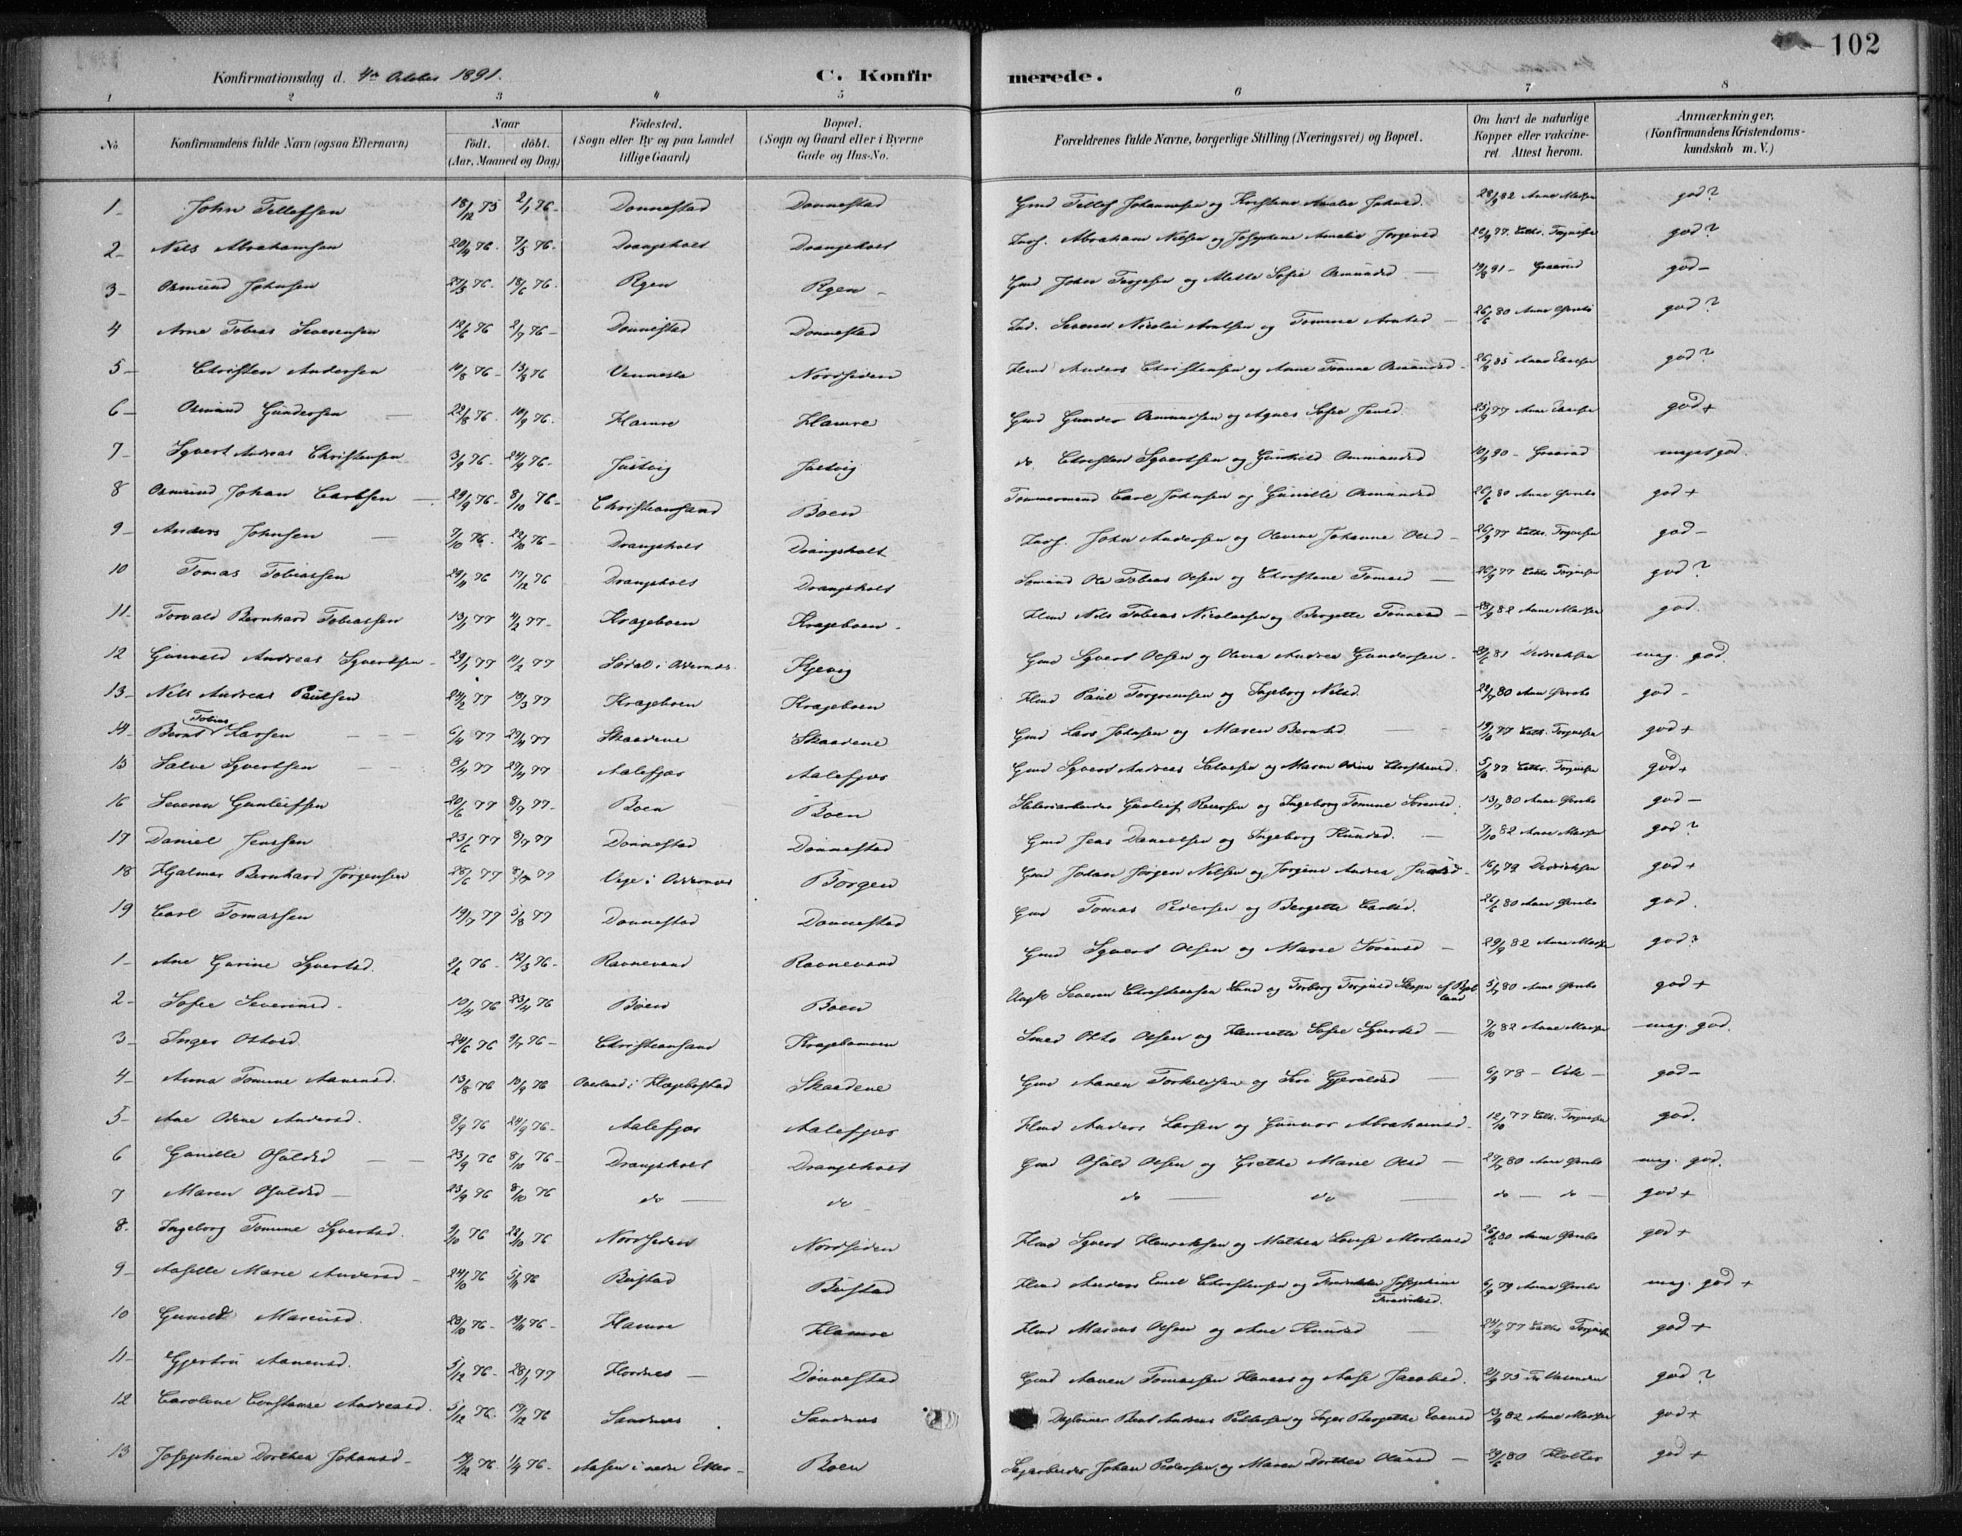 102
Konfirmationsdag d. 4de October 1891. C. Konfirmerede.
1 2 3 4 5 6 7 8
No. Konfirmandens fulde Navn (ogsaa Efternavn) Naar født. døbt. (Aar, Maaned og Dag) Fødested. (Sogn eller By og paa Landet tillige Gaard) Bopæl. (Sogn og Gaard eller i Byerne Gade og Hus-No. Forældrenes fulde Navne, borgerlige Stilling (Næringsvei) og Bopæl. Om havt de naturlige Kopper eller vakcineret. Attest herom. Anmærkninger, (Konfirmandens Kristendomskundskab m. V.)
1 John Tellefsen 18/12 75 2/1 76 Donnestad Donnestad Gmd Tellef Johannesen og Kirstine Amalie Johnsd. 28/9 82 god?
2 Nils Abrahamsen 20/4 76 7/5 76 Drangsholt Drangsholt Abraham Nilsen og Josephine Amalie Jørgensd 26/9 77 Cath. Torjusen god?
3 Osmund Johnsen 27/5 76 18/6 76 Rgen Rgen Gmd John Terjesen og Mette Sofie Osmundsd 19/8 91 god
4 Arne Tobias Severensen 12/6 76 2/7 76 Donnestad Donnestad Ind. Severen Nicolai Arntsen og Tomine Arntsd 26/6 80 god?
5 Christen Andersen 10/8 76 13/8 76 Vennesla Nordsiden Hmd Anders Christensen og Anne Tomine Osmundsd 26/9 85 god?
6 Osmund Gundersen 22/8 76 10/9 76 Hamre Hamre Gmd Gunder Osmundsen og Agnes Sofie Jensd. 25/9 77 god +
7 Syvert Andreas Christensen 3/9 76 24/9 76 Justvig Justvig do Christen Syvertsen og Gunhild Osmundsd 10/9 90 meget god.
8 Osmund Johan Carlsen 29/9 76 8/10 76 Christiansand Boen Tømmermand Carl Johnsen og Gunille Osmundsd 26/6 80 god +
9 Anders Johnsen 7/10 76 22/10 76 Drangsholt Drangsholt John Andersen og Olevine Johanne Olsd 26/9 77 Cath. Torjusen god
10 Tomas Tobiassen 29/11 76 17/12 76 Drangsholt Drangsholt Sømand Ole Tobias Olsen og Christiane Tomasd 26/9 77 Cath. Torjusen god?
11 Torvald Bernhard Tobiassen 13/1 77 4/2 77 Krageboen Krageboen Hmd Nils Tobias Nicolaisen og Bergette Tomasd 28/9 82 god.
12 Gunvald Andreas Syvertsen 29/1 77 11/2 77 Sødal i Oddernes Kjevig Gmd Syvert Olsen og Olene Andrea Gundersen Didriksen meg. god.
13 Nils Andreas Paulsen 24/2 77 18/3 77 Krageboen Krageboen Hmd Paul Torgrimsen og Ingeborg Nilsd. 80 god
14 Bernt Tobias Larsen 6/4 77 29/4 77 Skaadene Skaadene Gmd Lars Johnsen og Maren Berntsd 19/10 77 Cath. Torjusen god +
15 Salve Syvertsen 8/4 77 29/4 77 Aalefjær Aalefjær Gmd Syvert Andreas Salvesen og Maren Oline Christensd. 5/10 77 Cath. Torjusen god +
16 Severen Gunleifsen 20/6 77 8/7 77 Boen Boen Gunleif Reiersen og Ingeborg Tomine Sørensd. 13/7 80 god
17 Daniel Jensen 23/6 77 8/7 77 Donnestad Donnestad Gmd Jens Danielsen og Ingeborg Knudsd. 7/10 82 god?
18 Hjalmar Bernhard Jørgensen 28/6 77 8/7 77 Vige i Oddernes Borgen Gmd Johan Jørgen Nilsen og Jørgine Andrea 16/7 79 Didriksen god +
19 Carl Tomassen 19/7 77 5/8 77 Donnestad Donnestad Gmd Tomas Pedersen og Bergette Carlsd. 26/6 80 god.
1 Ane Gurine Syvertsd. 2/2 76 12/3 76 Ravnevand Ravnevand Gmd Syvert Olsen og Marie Sørensd 29/9 82 god?
2 Sofie Severinsd. 10/4 76 23/4 76 Boen Boen Severin Christensen Lund og Torborg Torjusd 5/7 80 god +
3 Inger Ottosd 24/6 76 9/7 76 Christiansand Kragebomoen Smed Otto Olsen og Henriette Sofie Syvertsd 7/10 82 meg. god.
4 Anna Tomine Aanensd. 13/8 76 10/9 76 Hægebostad Skaadene Gmd Aanen Torkelsen og Siri Gjeruldsd 6/9 78 god
5 Ane Odine Andersd. 8/9 76 24/9 76 Aalefjær Aalefjær Hmd Anders Larsen og Gunvor Abrahamsd. 12/10 77 Cath. Torjusen god.
6 Gunille Osuldsd 23/9 76 8/10 76 Drangsholt Drangsholt Gmd Osuld Olsen og Grethe Marie Olsd 80 meg. god.
7 Maren Osuldsd 23/9 76 8/10 76 do do do do do do god +
8 Ingeborg Tomine Syvertsd. 9/10 76 22/10 76 Nordsiden Nordsiden Hmd Syvert Henriksen og Mathea Lovise Mortensd 26/6 80 god +
9 Aaselle Marie Andersd 24/10 76 5/11 76 Beistad Beistad Hmd Anders Emil Christensen og Josephine Fredriksd. 6/9 79 meg. god +
10 Gunild Mariusd. 28/10 76 19/11 76 Hamre Hamre Hmd Marcus Olsen og Ane Knudsd 24/9 77 Cath. Torjusen god +
11 Gjertru Aanensd. 5/12 76 28/1 77 Hordnes Donnestad Gmd Aanen Tomassen Hanaas og Aase Jacobsd. 75 god?
12 Caroline Constanse Andreasd. 5/12 76 17/12 76 Sandnes Sandnes Bent Andreas Pettersen og Inger Bergithe Evensd 13/9 82 god +
13 Josephine Dorthea Johansd 76 76 Aasen i nedre Eker Boen Johan Pedersen og Maren Dorthea Olausd 29/6 80 Holter god +